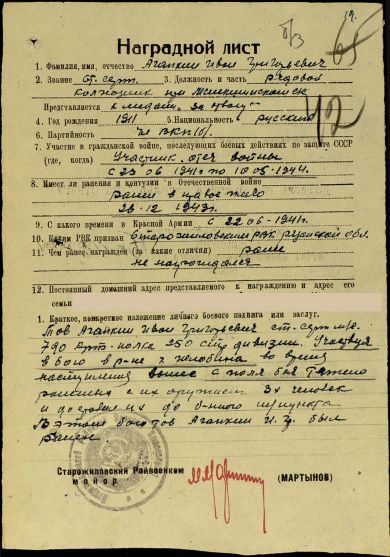 б/з
19.
65
Наградной лист
1. Фамилия, имя, отчество Агапкин Иван Григорьевич
2. Звание ст. серж. 3. Должность и часть рядовой
колхозник
Представляется к медали „за отвагу"
42
4. Год рождения 1911 5. Национальность русский
6. Партийность чл ВКП/б/.
7. Участие в гражданской войне, последующих боевых действиях по защите СССР
(где, когда) Участник отеч войны
с 23 06 1941г по 10 05 1944г.
8. Имеет ли ранения и контузии в Отечественной войне
ранен в правое
26. 12 1943г.
9. С какого времени в Красной Армии с 22 06-1941г.
10. Каким РВК призван Старожиловским РВК Рязанской обл.
11. Чем ранее награжден (за какие отличия) ранее
не награждался
12. Постоянный домашний адрес представляемого к награждению и адрес его
семьи
1. Краткое, конкретное изложение личного боевого подвига или заслуг.
Тов Агапкин Иван Григорьевич ст. серж
790 Арт. полка 250 стр дивизии. Участвуя
в бою в р-не г Жлобина во время
наступления вынес с поля боя тяжело
раненых с их оружием 3х человек
и доставил их до б-нного пункта
В этом бою тов Агапкин И. Г. был
ранен.
Старожиловский Райвоенком
майор
(МАРТЫНОВ)